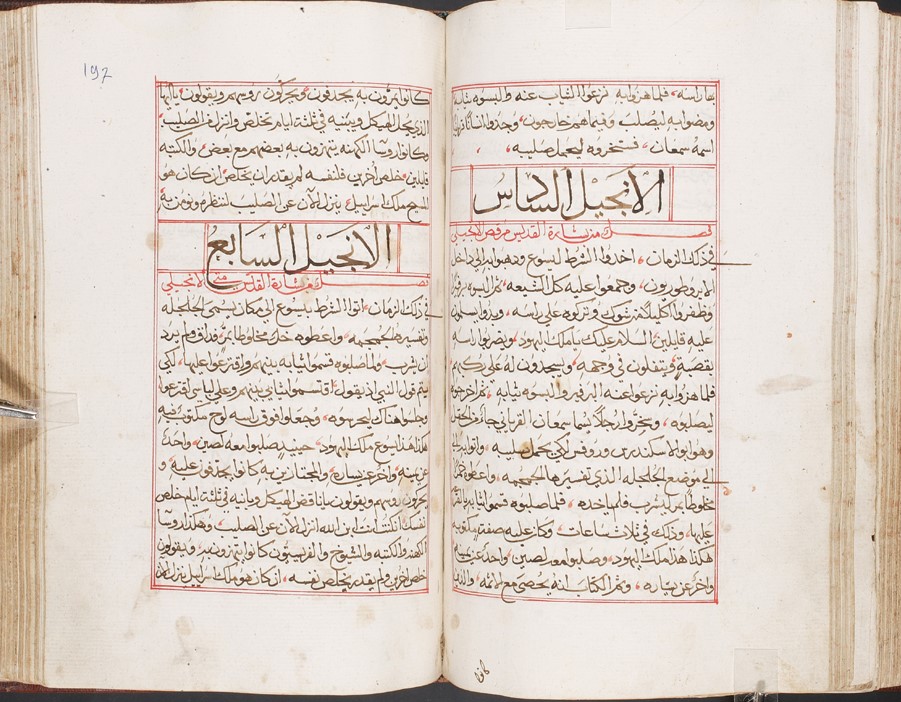 بها راسه، فلما هزوا به نزعوا الثياب عنه والبسوه ثيابه
ومضوا به ليصلب، وفيما هم خارجون، وجدوا انسانًا
اسمه سمعان، فسخروه ليحمل صليبه،
الانجيل السادس
فصل من بشارة القديس مرقص الانجيلي
في ذلك الزمان، اخدوا الشرط ليسوع ودهبوا به الى داخل
وجمعوا عليه كل الشيعه،
وظفروا اكليلا من شوك وتركوه على راسه، وبدوا يسلمون
عليه قايلين، السلام عليك يا ملك اليهود، ويضربوا راسه
بقصبه، ويتفلون في وجهه، ويسجدون له على ركبهم
فلما هزوا به نزعوا عنه البرفير والبسوه ثيابه، ثم اخرجوه
ليصلبوه، وسخروا رجلًا يسما سمعان القرياني جاي من الحقل
وهو ابو الاسكندرس وروفس لكي يحمل صليبه، واتوا به
الى موضع الجلجله الذي تفسيرها الجمجمه، واعطوه خمرًا
مخلوطًا بمر ليشرب فلم ياخده، فلما صلبوه قسموا ثيابه
عليها، وذلك في ثلاث ساعات، وكان عليه صفة مكتوبه
هكذا هذا ملك اليهود، وصلبوا معه لصين، واحد عن يمينه
واخر عن يساره، وتم الكتاب انه يحصى مع الائمه، والذين
كانوا
197
كانوا يمرون به يجدفون، ويحركون روسهم ويقولون، يا ايها
الذي يحل الهيكل ويبنيه في ثلثة ايام تخلص وانزل عن الصليب
وكانوا روسا الكهنه يتهزون به بعضهم مع بعض، والكتبه
قايلين، خلص اخرين فلنفسه لم يقدر ان يخلص، ان كان هو
المسيح ملك اسراييل، ينزل الآن عن الصليب لننظر ونومن به
الانجيل السابع
فصل من بشارة القديس متى الانجيلي
في ذلك الزمان، اتوا الشرط بيسوع الى مكان يسمى الجلجله
وتفسيرها الجمجمه، واعطوه خل مخلوطا بمر، وداق ولم يرد
ان يشرب، ولما صلبوه قسموا ثيابه بينهم واقترعوا عليها، لكي
يتم قول النبي اذ يقول، اقتسموا ثيابي بينهم وعلى لباسي اقترعوا
وجلسوا هناك ليحرسوه، وجعلوا فوق راسه لوح مكتوب فيه
هكذا هذا يسوع ملك اليهود، حينيذ صلبوا معه لصين، واحد
عن يمينه، واخر عن يساره، والمجتازين به كانوا يجدفون عليه، و
يحركون روسهم ويقولون يا ناقض الهيكل وبانيه في ثلثة ايام خلص
نفسك ان كنت انت ابن الله انزل الآن عن الصليب، وهكذا روسا
الكهنه والكتبه والمشيوخ والفريسيون كانوا يتهزون به، ويقولون
خلص اخرين ولم يقدر يخلص نفسه، ان كان هو ملك اسراييل ينزل الآن